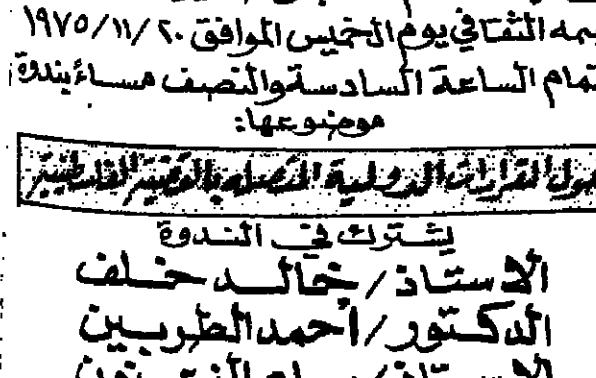 الثقافي يوم الخميس الموافق ٢٠/١١/١٩٧٥
تمام الساعة السادسة والنصف مساءً بندوة
موضوعها:
حول القرارات الدولية المتصلة بالقضية الفلسطينية
يشترك في الندوة
الأستاذ/ خالد خلف
الدكتور/ أحمد الطربين